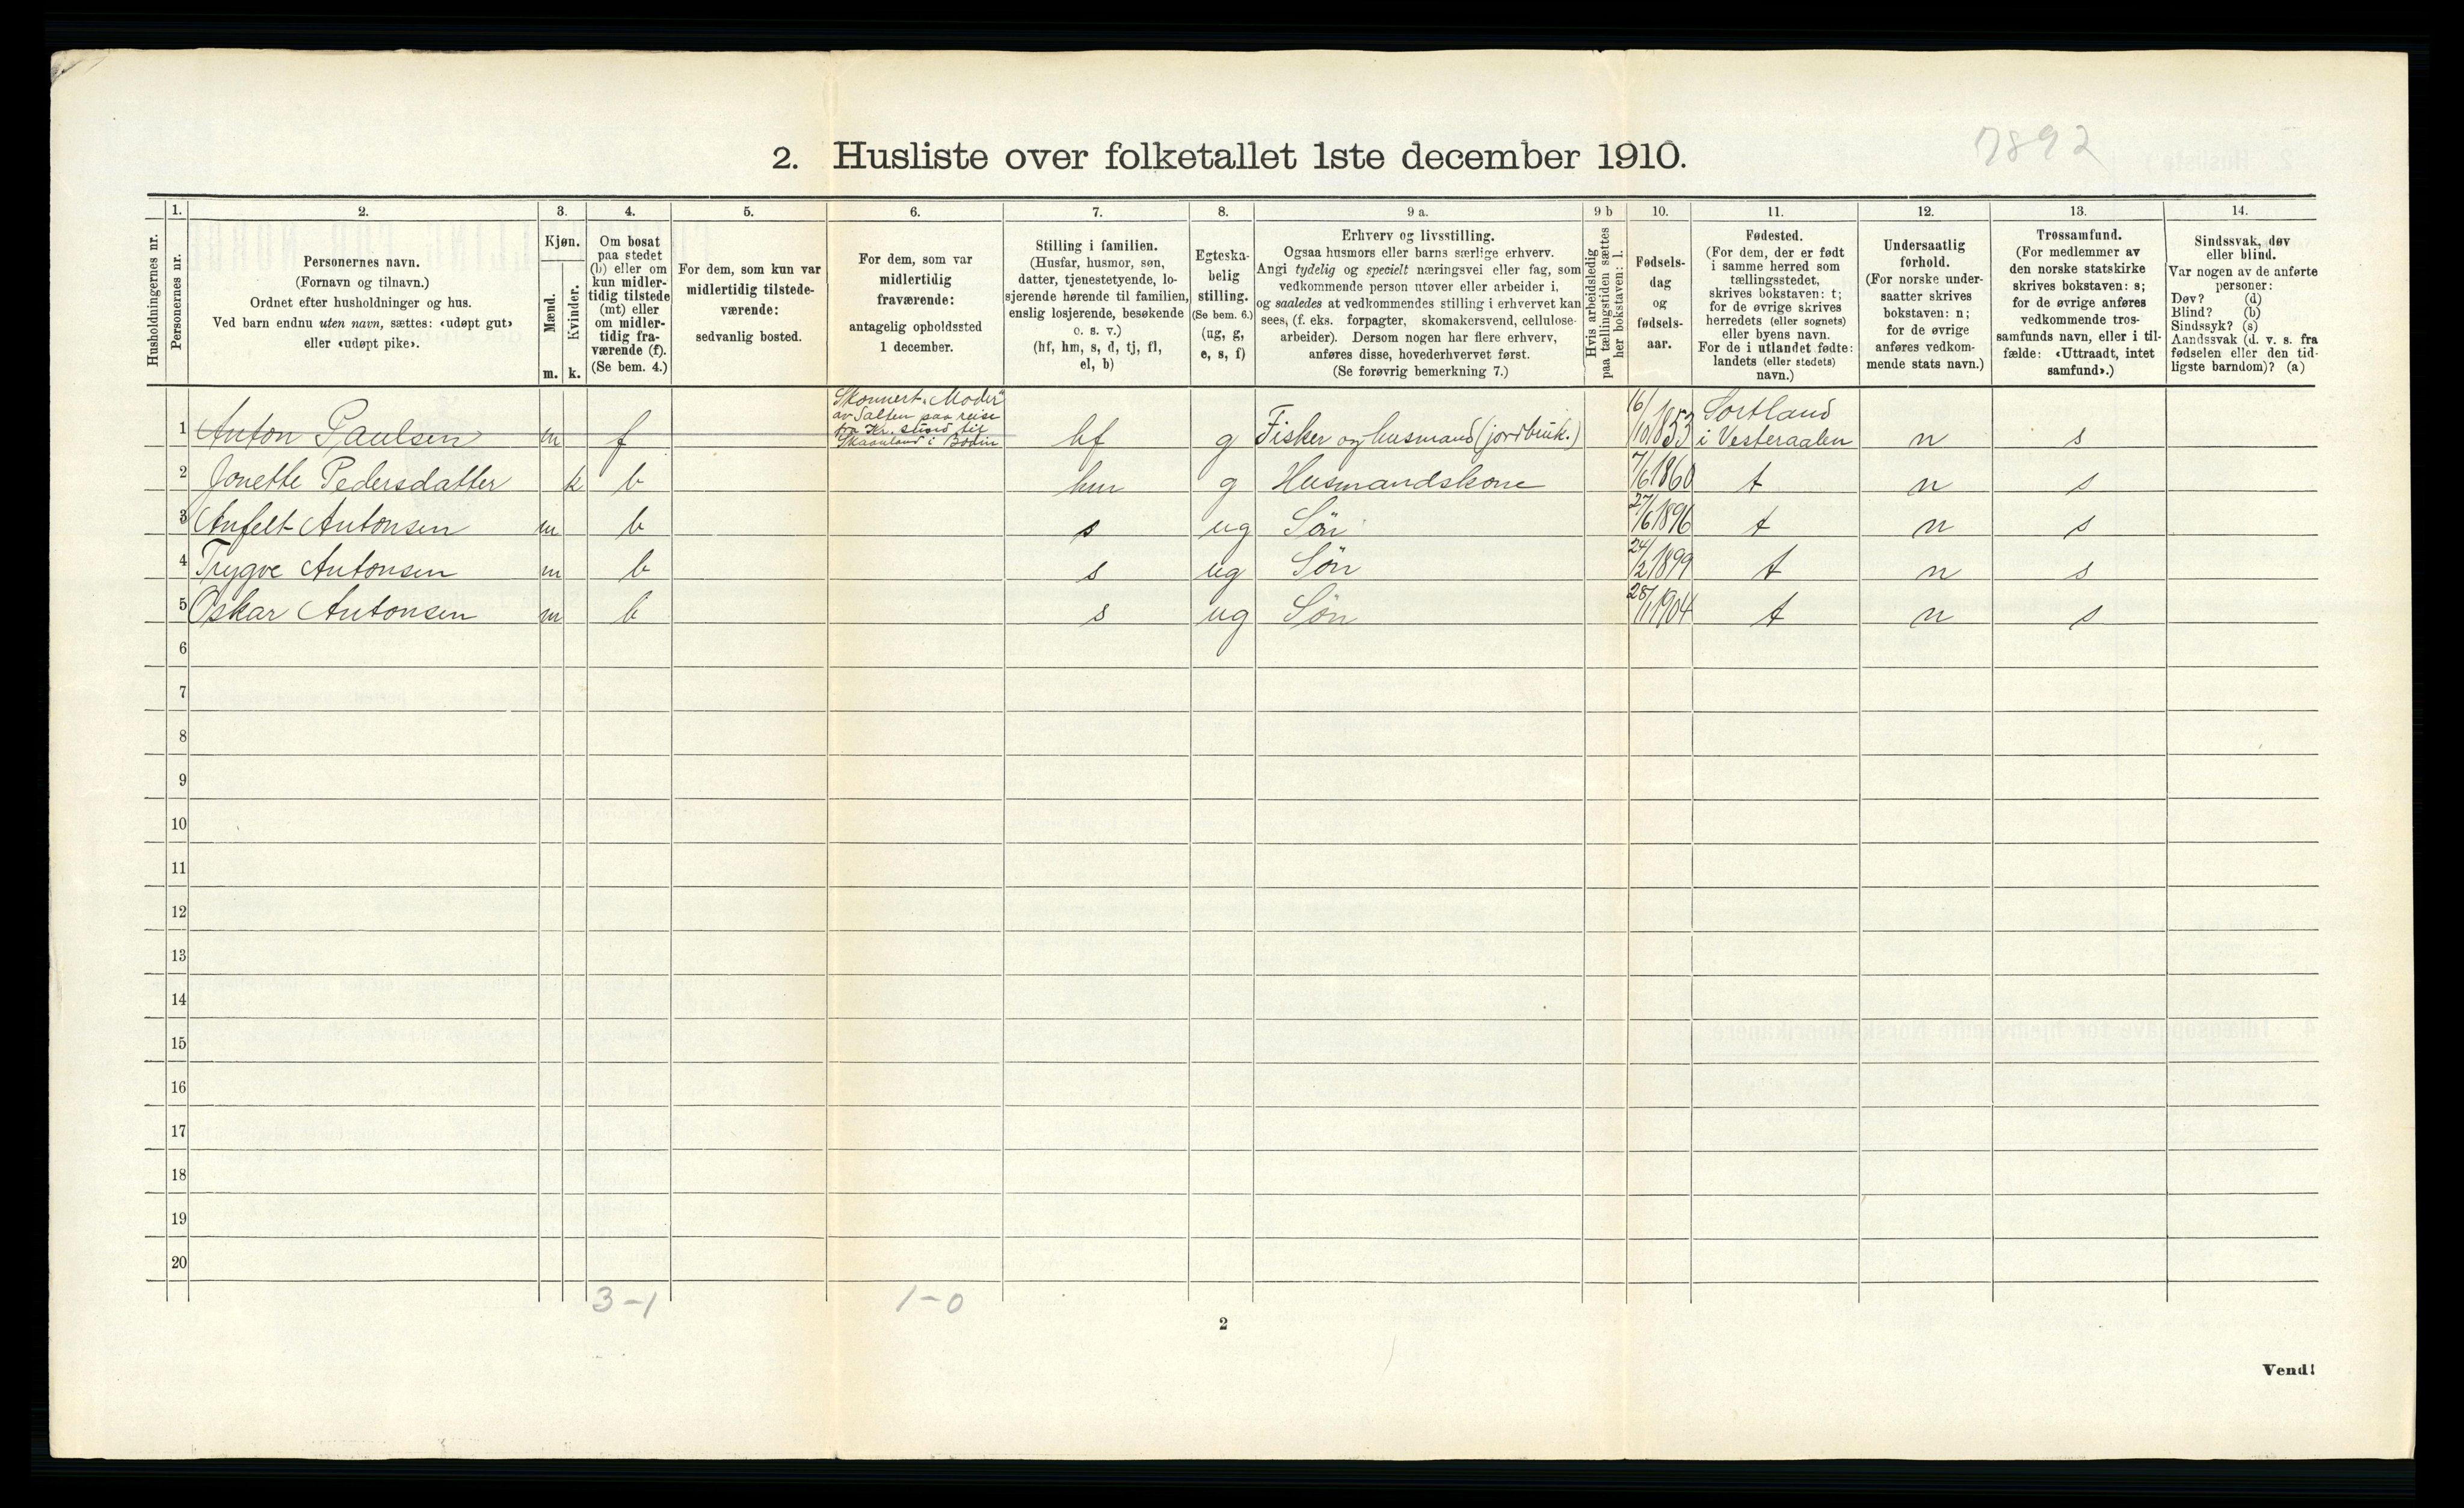 7892
2. Husliste over folketallet 1ste december 1910.
Husholdningernes nr.
1. Personernes nr.
2. Personernes navn.
(Fornavn og tilnavn.)
Ordnet efter husholdninger og hus.
Ved barn endnu uten navn, sættes: «udøpt gut»
eller «udøpt pike».
3. Kjøn.
Mænd. m.
Kvinder. k.
4. Om bosat
paa stedet
(b) eller om
kun midler-
tidig tilstede
(mt) eller
om midler-
tidig fra-
værende (f).
(Se bem. 4.)
5. For dem, som kun var
midlertidig tilstede-
værende:
sedvanlig bosted.
6. For dem, som var
midlertidig
fraværende:
antagelig opholdssted
1 december.
7. Stilling i familien.
(Husfar, husmor, søn,
datter, tjenestetyende, lo-
sjerende hørende til familien,
enslig losjerende, besøkende
o. s. v.)
(hf, hm, s, d, tj, fl,
el, b)
8. Egteska-
belig
stilling.
(Se bem. 6.)
(ug, g,
e, s, f)
9 a. Erhverv og livsstilling.
Ogsaa husmors eller barns særlige erhverv.
Angi tydelig og specielt næringsvei eller fag, som
vedkommende person utøver eller arbeider i,
og saaledes at vedkommendes stilling i erhvervet kan
sees, (f. eks. forpagter, skomakersvend, cellulose-
arbeider). Dersom nogen har flere erhverv,
anføres disse, hovederhvervet først.
(Se forøvrig bemerkning 7.)
9 b Hvis arbeidsledig
paa tællingstiden sættes
her bokstaven: l.
10. Fødsels-
dag
og
fødsels-
aar.
11. Fødested.
(For dem, der er født
i samme herred som
tællingsstedet,
skrives bokstaven: t;
for de øvrige skrives
herredets (eller sognets)
eller byens navn.
For de i utlandet fødte:
landets (eller stedets)
navn.)
12. Undersaatlig
forhold.
(For norske under-
saatter skrives
bokstaven: n;
for de øvrige
anføres vedkom-
mende stats navn.)
13. Trossamfund.
(For medlemmer av
den norske statskirke
skrives bokstaven: s;
for de øvrige anføres
vedkommende tros-
samfunds navn, eller i til-
fælde: «Uttraadt, intet
samfund».)
14. Sindssvak, døv
eller blind.
Var nogen av de anførte
personer:
Døv? (d)
Blind? (b)
Sindssyk? (s)
Aandssvak (d. v. s. fra
fødselen eller den tid-
ligste barndom)? (a)
Skonnert „Moder"
av Salten paa reise
fra Kr. stsund til
Skaanland i Bodin
1 Anton Paulsen m f hf g Fisker og husmand (jordbruk.) 16/10 1853 Sortland
i Vesteraalen n s
2 Jonette Pedersdatter k b hm g Husmandskone 7/6 1860 t n s
3 Anfelt Antonsen m b s ug Søn 27/6 1896 t n s
4 Trygve Antonsen m b s ug Søn 24/2 1899 t n s
5 Oskar Antonsen m b s ug Søn 28/1 1904 t n s
6
7
8
9
10
11
12
13
14
15
16
17
18
19
20
3-1 1-0
2
Vend!